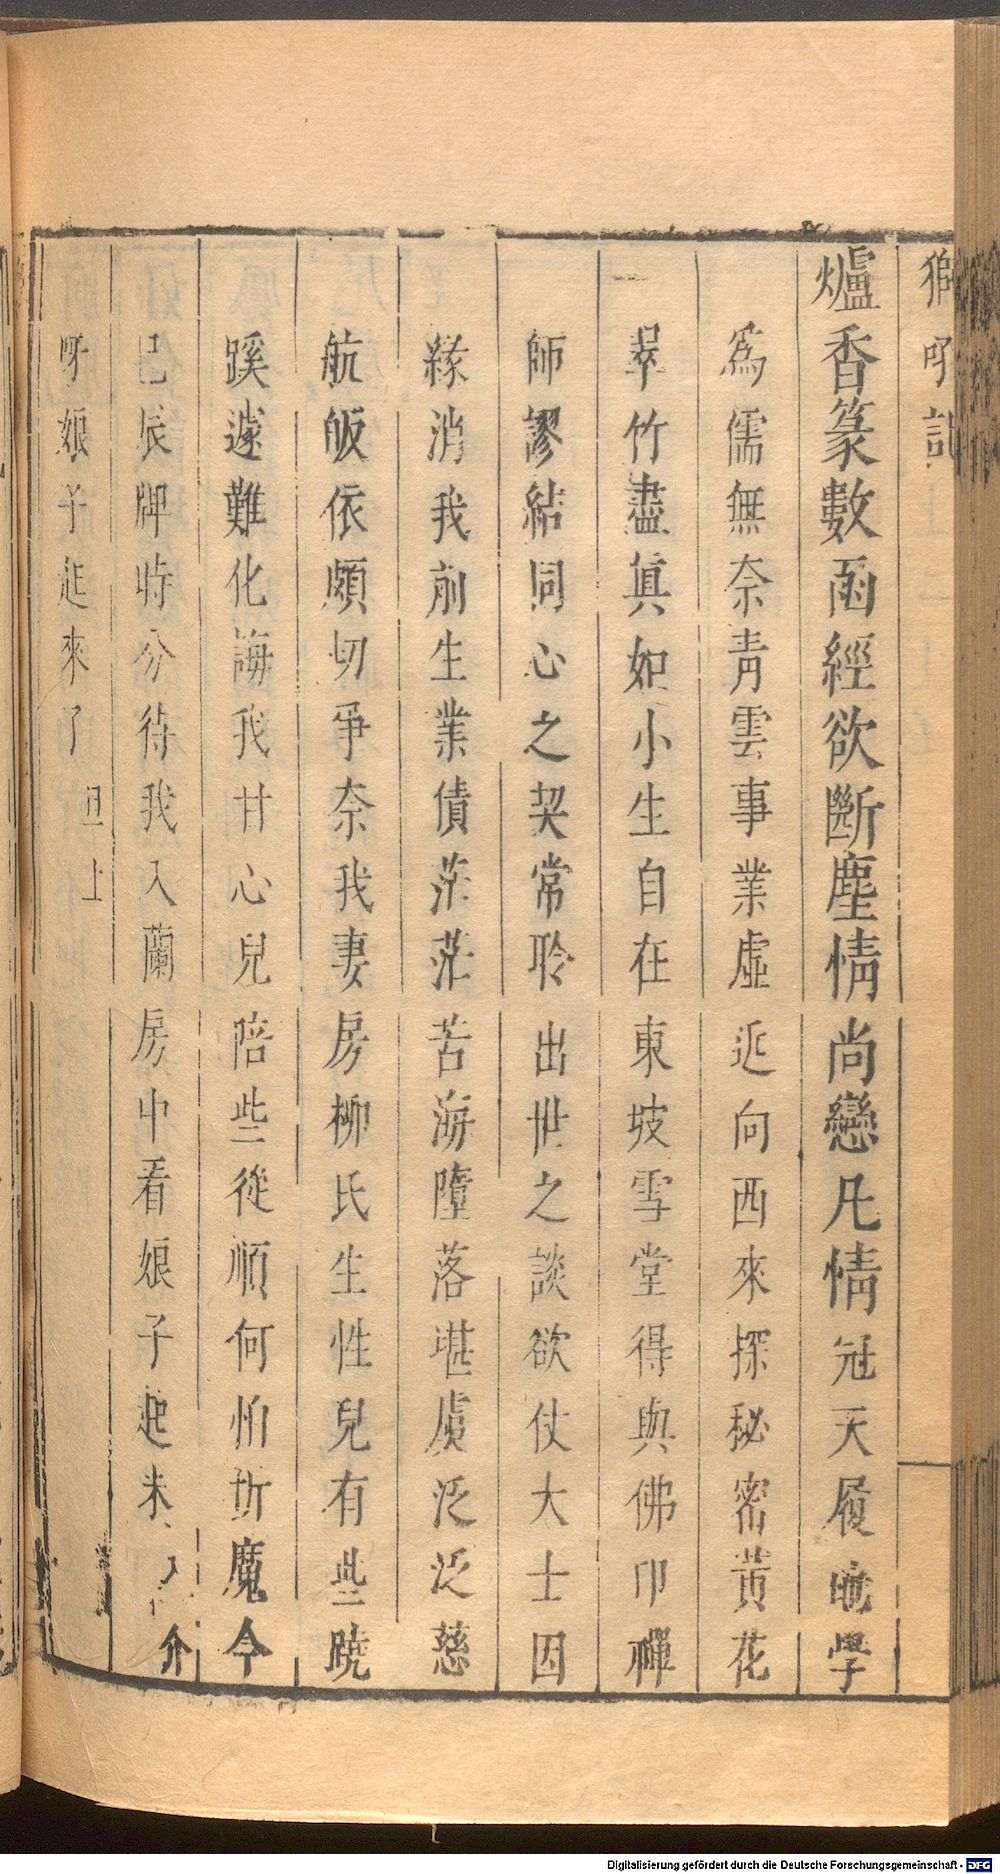 獅吼記
爐香篆數函經欲斷塵情尚戀凡情冠天履地學
爲儒無奈青雲事業虛近向西來探秘密黃花
一翠竹盡真如小生自在東坡雪堂得與佛印禪
師謬結同心之契常聆出世之談欲仗大士因
緣消我前生業債茫茫苦海墮落堪虞泛泛慈
航皈依頗切爭奈我妻房柳氏生性兒有些蹺
蹊遽難化誨我甘心兒陪些從順何怕折魔今
已辰牌時分待我入蘭房中看娘子起未入介
呀娘子起來了旦上
Digitalisierung gefördert durch die Deutsche Forschungsgemeinschaft - DFG